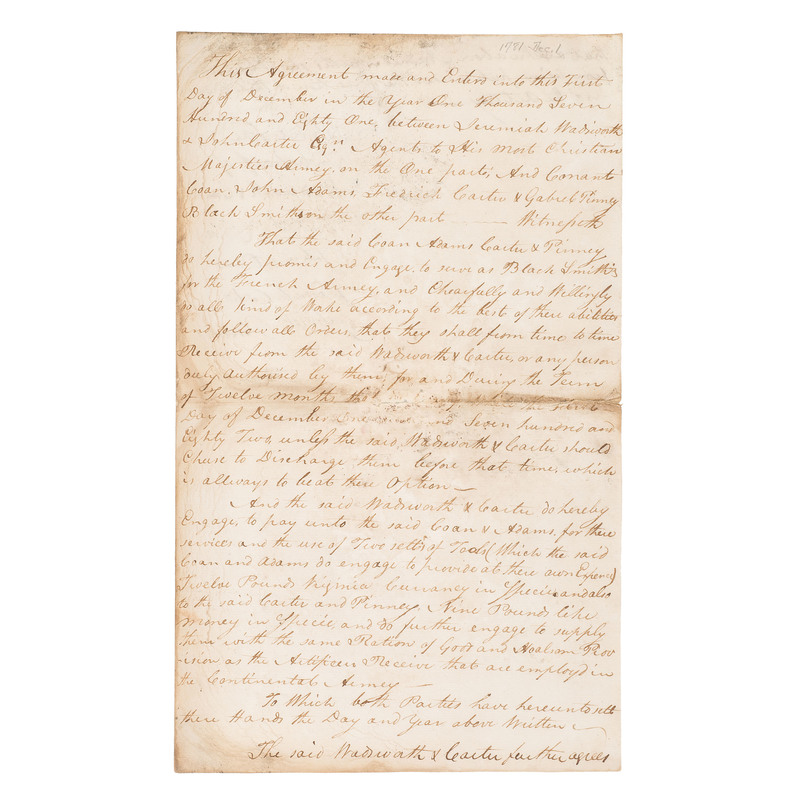 1781 Dec. 1
This Agreement made and Enterd into this First
Day of December in the Year One Thousand Seven
Hundred and Eighty One, between Jeremiah Wadsworth
& John Carter Esqrs Agents to His Most Christian
Majesties Armey, on the One parts, And Conant
Coan, John Adams, Fredrick Carter & Gabriel Pinney
Black Smiths on the other part — Witnesseth
That the said Coan Adams Carter & Pinney
do hereby promis and Engage, to serve as Black Smiths
for the French Armey, and Chearfully and Willingly
do all kind of Worke according to the best of there abilities
and follow all Orders, that they shall from time to time
Receive from the said Wadsworth & Carter, or any person
duly Authorised by them, for and During the Term
of Twelve months the First
Day of December One Seven hundred and
Eighty Two, unless the said, Wadsworth & Carter should
Chuse to Discharge them before that time, which
is allways to beat there Option —
And the said Wadsworth & Carter do hereby
Engage, to pay unto the said Coan & Adams, for there
services and the use of Two setts of Tools (Which the said
Coan and Adams do engage to provide at there own Expence)
Twelve Pounds Virginia Currancy in Specie and also
to the said Carter and Pinney Nine Pounds like
money in Specie, and do further engage to supply
them with the same Ration of Good and Hoalsom Prov
-ision as the Artificers Receive that are employd in
the Continental Armey —
To Which both Parties have hereunto sett
there Hands the Day and Year above Written —
The said Wadsworth & Carter further agrees